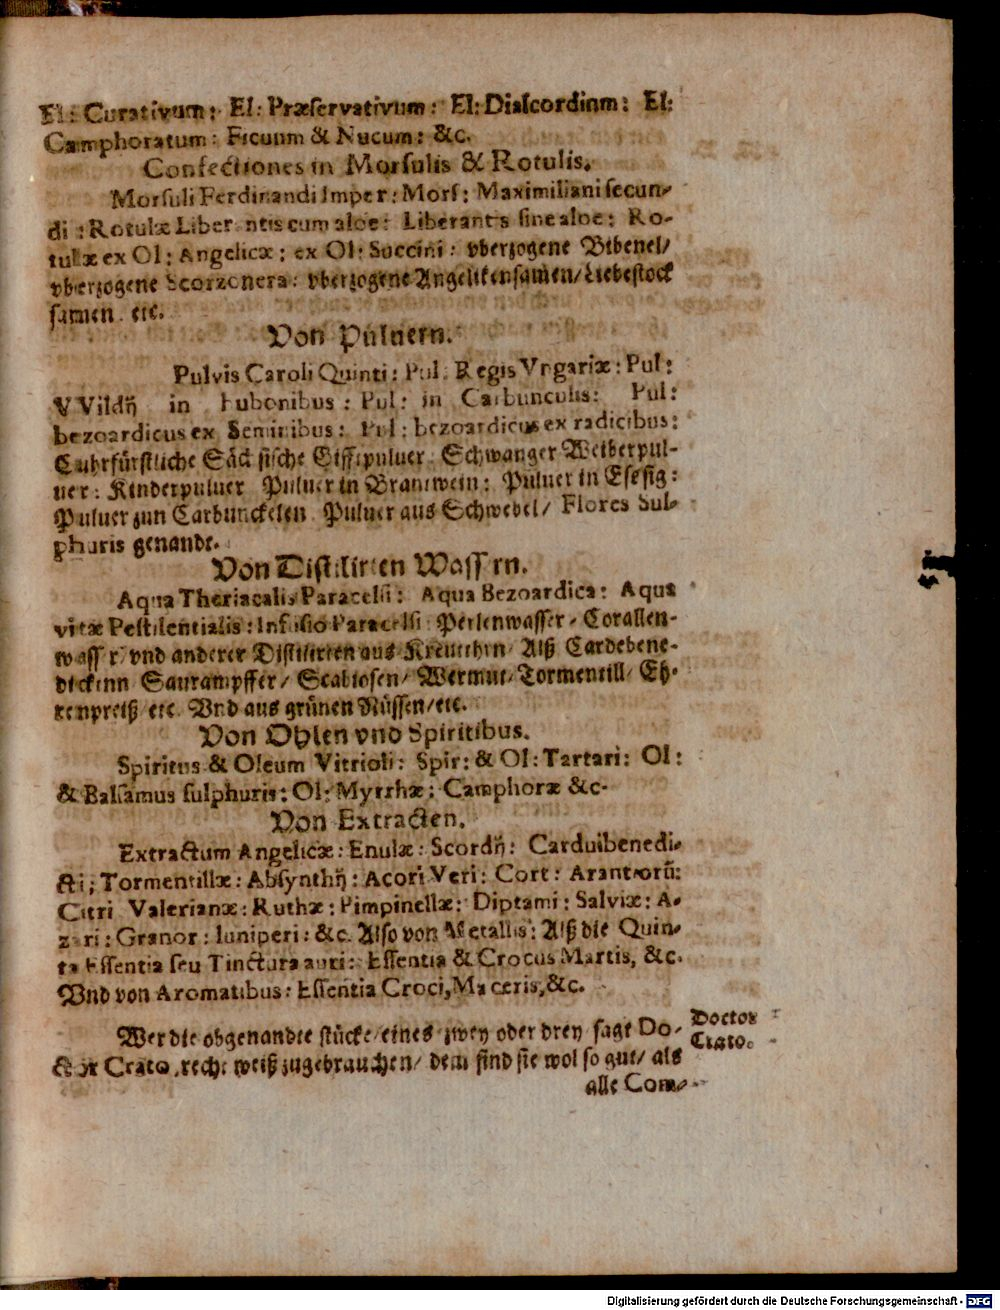 El: Curativum: El: Præservativum: El: Diascordium: El:
Camphoratum: Ficuum & Nucum: &c.
Confectiones in Morsulis & Rotulis.
Morsuli Ferdinandi Imper: Mors: Maximiliani secun-
di: Rotulæ Liberantis cum aloe: Liberantis sine aloe: Ro-
tulæ ex Ol: Angelicæ: ex Ol: Succini: vberzogene Bibenel/
vberzogene Scorzonera: vberzogene Angelikensamen/ Liebestock
samen. etc.
Von Puluern.
Pulvis Caroli Quinti: Pul: Regis Vngariæ: Pul:
VVildij in Bubonibus: Pul: in Carbunculis: Pul:
bezoardicus ex Seminibus: Pul: bezoardicus ex radicibus:
Cuhrfürstliche Säckssische Gifftpuluer Schwanger Weiberpul-
uer: Kinderpuluer Puluer in Brantwein: Puluer in Essig:
Puluer zun Carbunckelen Puluer aus Schwebel/ Flores Sul-
phuris genandt.
Von Distilirten Wassern.
Aqua Theriacalis Paracelsi: Aqua Bezoardica: Aqua
vitæ Pestilentialis: Infusio Paracelsi Perlenwasser/ Corallen-
wasser/ vnd anderer Distilirten aus Kreutern/ Alß Cardebene-
dickenn Saurampffer/ Scabiosen/ Wermut/ Tormentill/ Eh-
renpreiß/ etc. Vnd aus grünen Nüssen/ etc.
Von Ohlen vnd Spiritibus.
Spiritus & Oleum Vitrioli: Spir: & Ol: Tartari: Ol:
& Balsamus sulphuris: Ol: Myrrhæ: Camphoræ &c.
Von Extracten.
Extractum Angelicæ: Enulæ: Scordij: Carduibenedi-
cti; Tormentillæ: Absynthij: Acori Veri: Cort: Arantiorũ:
Citri Valerianæ: Ruthæ: Pimpinellæ: Diptami: Salviæ: A-
zari: Granor: Iuniperi: &c. Also von Metallis: Alß die Quin-
ta Essentia seu Tinctura auri: Essentia & Crocus Martis, &c.
Vnd von Aromatibus: Essentia Croci, Maceris, &c.
Wer die obgenandte stücke/ eines zwey oder drey sagt Do-
ctor Crato recht weiß zugebrauchen/ dem sind sie wol so gut/ als
Doctor
Crato.
alle Com-
Digitalisierung gefördert durch die Deutsche Forschungsgemeinschaft - DFG